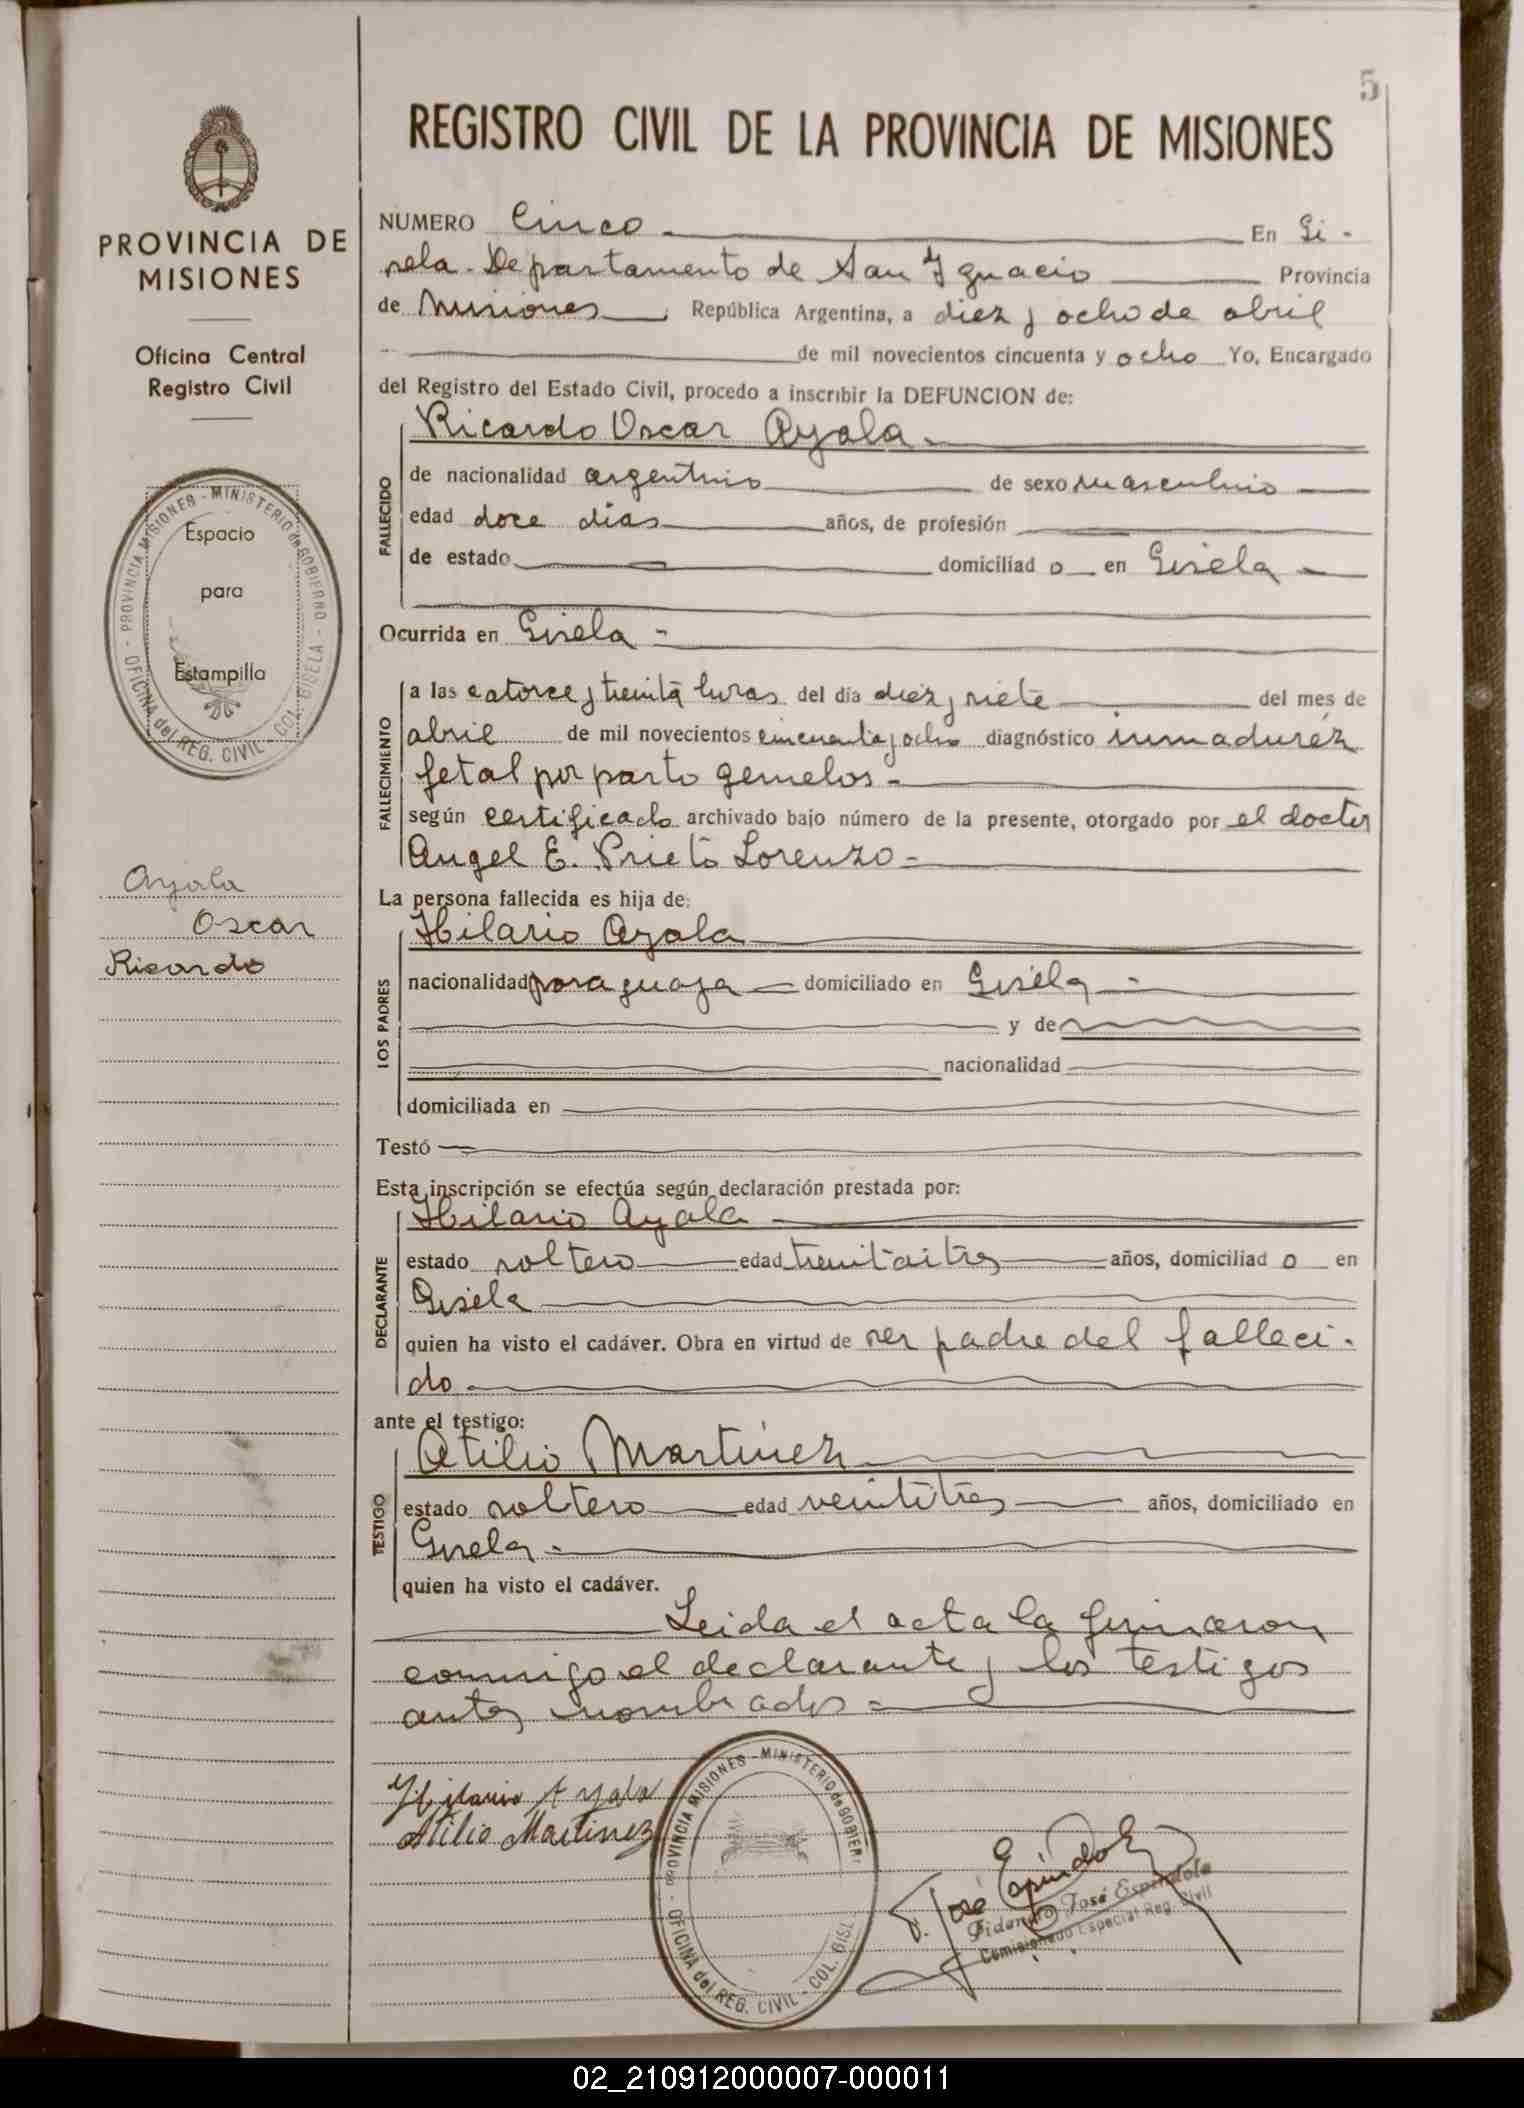 5
REGISTRO CIVIL DE LA PROVINCIA DE MISIONES
PROVINCIA DE
MISIONES
Oficina Central
Registro Civil
PROVINCIA MISIONES - MINISTERIO de GOBIERNO - OFICINA del REG. CIVIL - COL. GISELA -
Espacio
para
Estampilla
Ayala
Oscar
Ricardo
NUMERO Cinco En Gi-
sela - Departamento de San Ignacio Provincia
de Misiones, República Argentina, a diez y ocho de abril
de mil novecientos cincuenta y ocho Yo, Encargado
del Registro del Estado Civil, procedo a inscribir la DEFUNCION de:
FALLECIDO
Ricardo Oscar Ayala
de nacionalidad argentino de sexo masculino
edad doce días años, de profesión
de estado domiciliad o en Gisela
Ocurrida en Gisela -
FALLECIMIENTO
a las catorce y treinta horas del día diez y siete del mes de
abril de mil novecientos cincuenta y ocho diagnóstico inmadurez
fetal por parto gemelos -
según certificado archivado bajo número de la presente, otorgado por el doctor
Angel E. Prieto Lorenzo -
La persona fallecida es hija de:
LOS PADRES
Hilario Ayala
nacionalidad paraguaya domiciliado en Gisela -
y de
nacionalidad
domiciliada en
Testó
Esta inscripción se efectúa según declaración prestada por:
DECLARANTE
Hilario Ayala
estado soltero edad treintaitres años, domiciliad o en
Gisela
quien ha visto el cadáver. Obra en virtud de ser padre del falleci-
do -
ante el testigo:
TESTIGO
Atilio Martinez
estado soltero edad veintitres años, domiciliado en
Gisela -
quien ha visto el cadáver.
Leida el acta la firmaron
conmigo el declarante y los testigos
antes nombrados =
Hilario Ayala
Atilio Martinez
PROVINCIA MISIONES - MINISTERIO de GOBIER
OFICINA del REG. CIVIL - COL. GISL
F. José Espindola
José Espindola
Comisionado Especial Reg. Civil
02_210912000007-000011